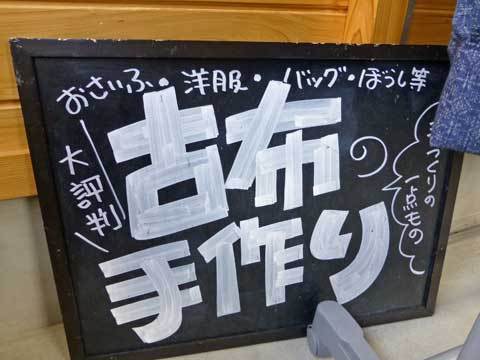 おさいふ・洋服・バッグ・ぼうし等
大評判
古布の
手作り
づくりの
一点もの